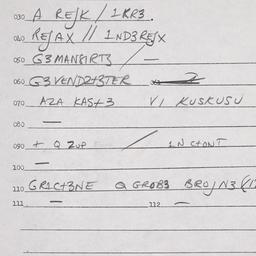 030 A REJK / 1RR3.
040 REJAX // 1ND3REJX
050 G3MANSIRT3 / —
060 G3VENDZ+3TER
070 AZA KAS+3 V1 KUSKUSU
080 —
090 + Q ZUP / 1N C+ONT
100 —
110 GR1C+3NE Q GROB3 BROJN3
111 — 112 —